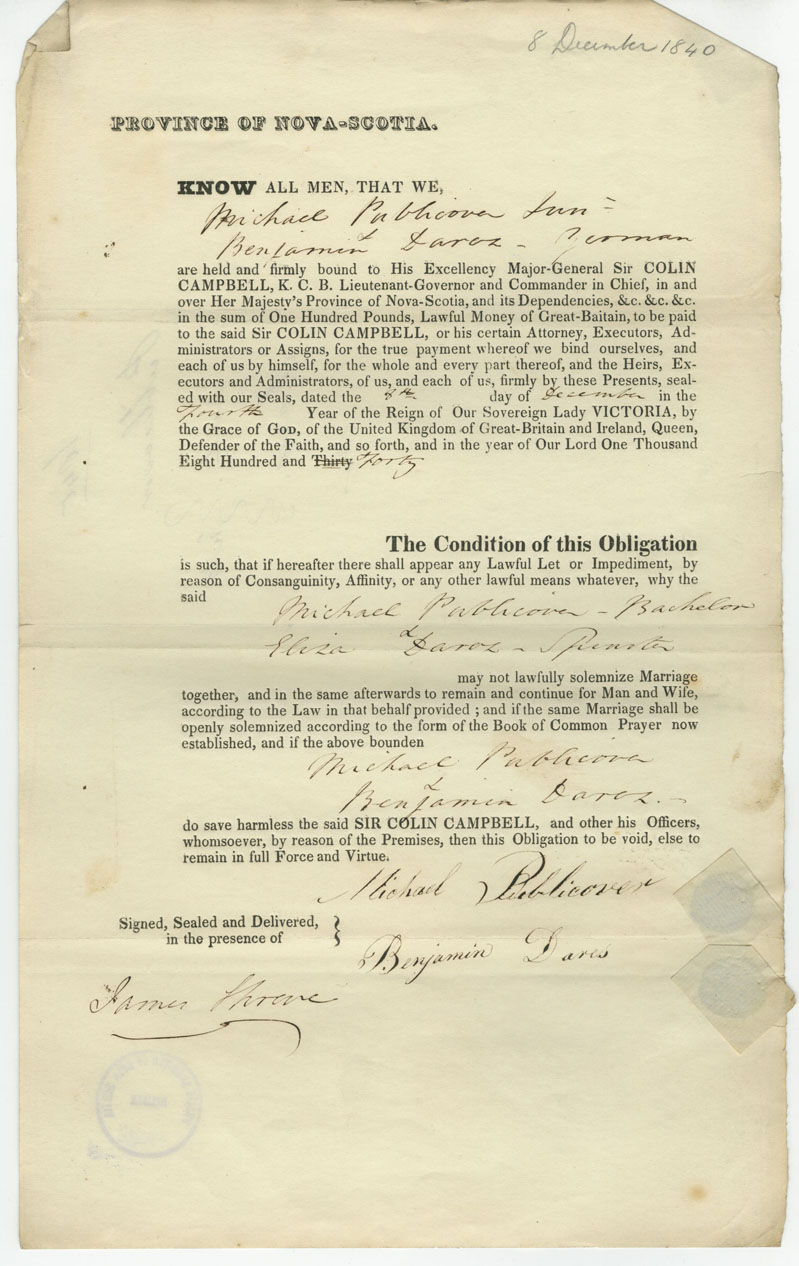 8 December 1840
PROVINCE OF NOVA-SCOTIA.
KNOW ALL MEN, THAT WE,
Michael Publicover Junr
Benjamin Dares - Yeoman
are held and firmly bound to His Excellency Major-General Sir COLIN
CAMPBELL, K. C. B. Lieutenant-Governor and Commander in Chief, in and
over Her Majesty's Province of Nova-Scotia, and its Dependencies, &c. &c. &c.
in the sum of One Hundred Pounds, Lawful Money of Great-Baitain, to be paid
to the said Sir COLIN CAMPBELL, or his certain Attorney, Executors, Ad-
ministrators or Assigns, for the true payment whereof we bind ourselves, and
each of us by himself, for the whole and every part thereof, and the Heirs, Ex-
ecutors and Administrators, of us, and each of us, firmly by these Presents, seal-
ed with our Seals, dated the 8th day of December in the
Fourth Year of the Reign of Our Sovereign Lady VICTORIA, by
the Grace of GOD, of the United Kingdom of Great-Britain and Ireland, Queen,
Defender of the Faith, and so forth, and in the year of Our Lord One Thousand
Eight Hundred and Thirty Forty
The Condition of this Obligation
is such, that if hereafter there shall appear any Lawful Let or Impediment, by
reason of Consanguinity, Affinity, or any other lawful means whatever, why the
said
Michael Publicover - Bachelor
&
Eliza Dares - Spinster
may not lawfully solemnize Marriage
together, and in the same afterwards to remain and continue for Man and Wife,
according to the Law in that behalf provided ; and if the same Marriage shall be
openly solemnized according to the form of the Book of Common Prayer now
established, and if the above bounden
Michael Publicover
&
Benjamin Dares -
do save harmless the said SIR COLIN CAMPBELL, and other his Officers,
whomsoever, by reason of the Premises, then this Obligation to be void, else to
remain in full Force and Virtue.
Michael Publicover
Signed, Sealed and Delivered,
in the presence of
Benjamin Dares
James Shreve